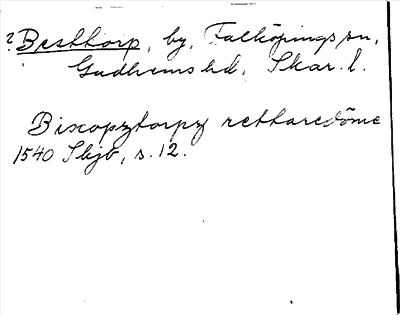 ? Besttorp, by, Falköpings sn,
Gudhems hd, Skar. l.
Biscopztorpz rettaredöme
1540 Skjb, s. 12.